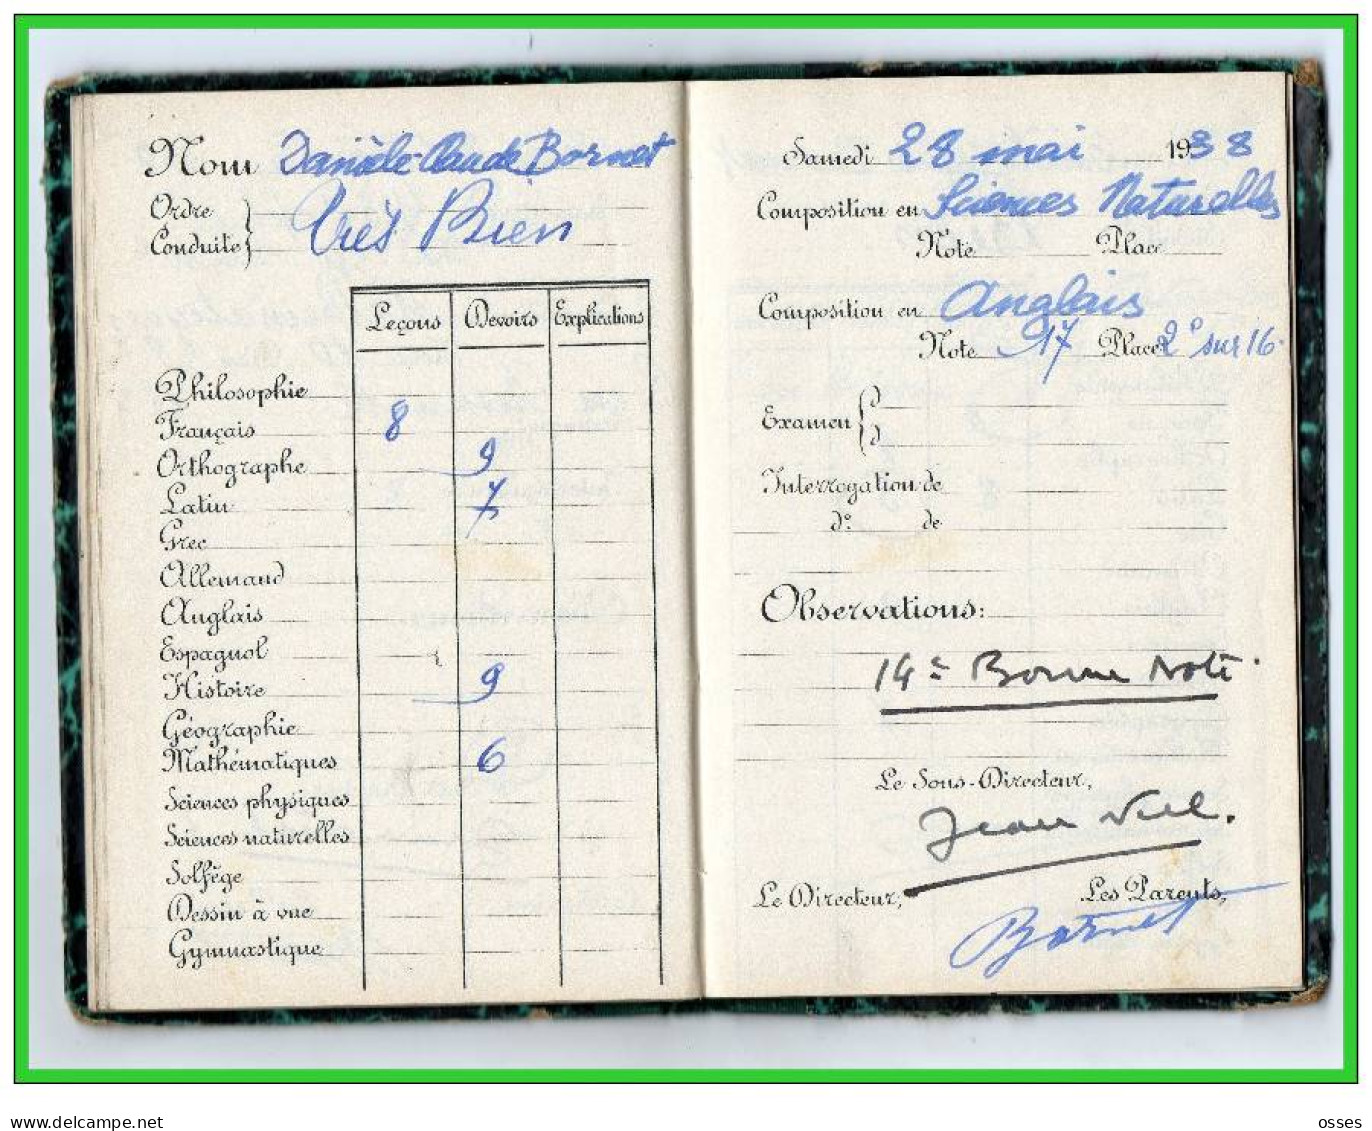 Nom Danièle-Claude Bornet
Ordre
Conduite
Très Bien
Leçons Devoirs Explications
Philosophie
Français 8
Orthographe 9
Latin 7
Grec
Allemand
Anglais
Espagnol
Histoire 9
Géographie
Mathématiques 6
Sciences physiques
Sciences naturelles
Solfège
Dessin à vue
Gymnastique
Samedi 28 mai 1938
Composition en Sciences Naturelles
Note Place
Composition en Anglais
Note 17 Place 2º sur 16
Examen
d
d
Interrogation de
dº de
Observations:
14e Bonne Note.
Le Sous-Directeur,
Jean
Le Directeur, Les Parents,
Bornet
delcampe.net
osses